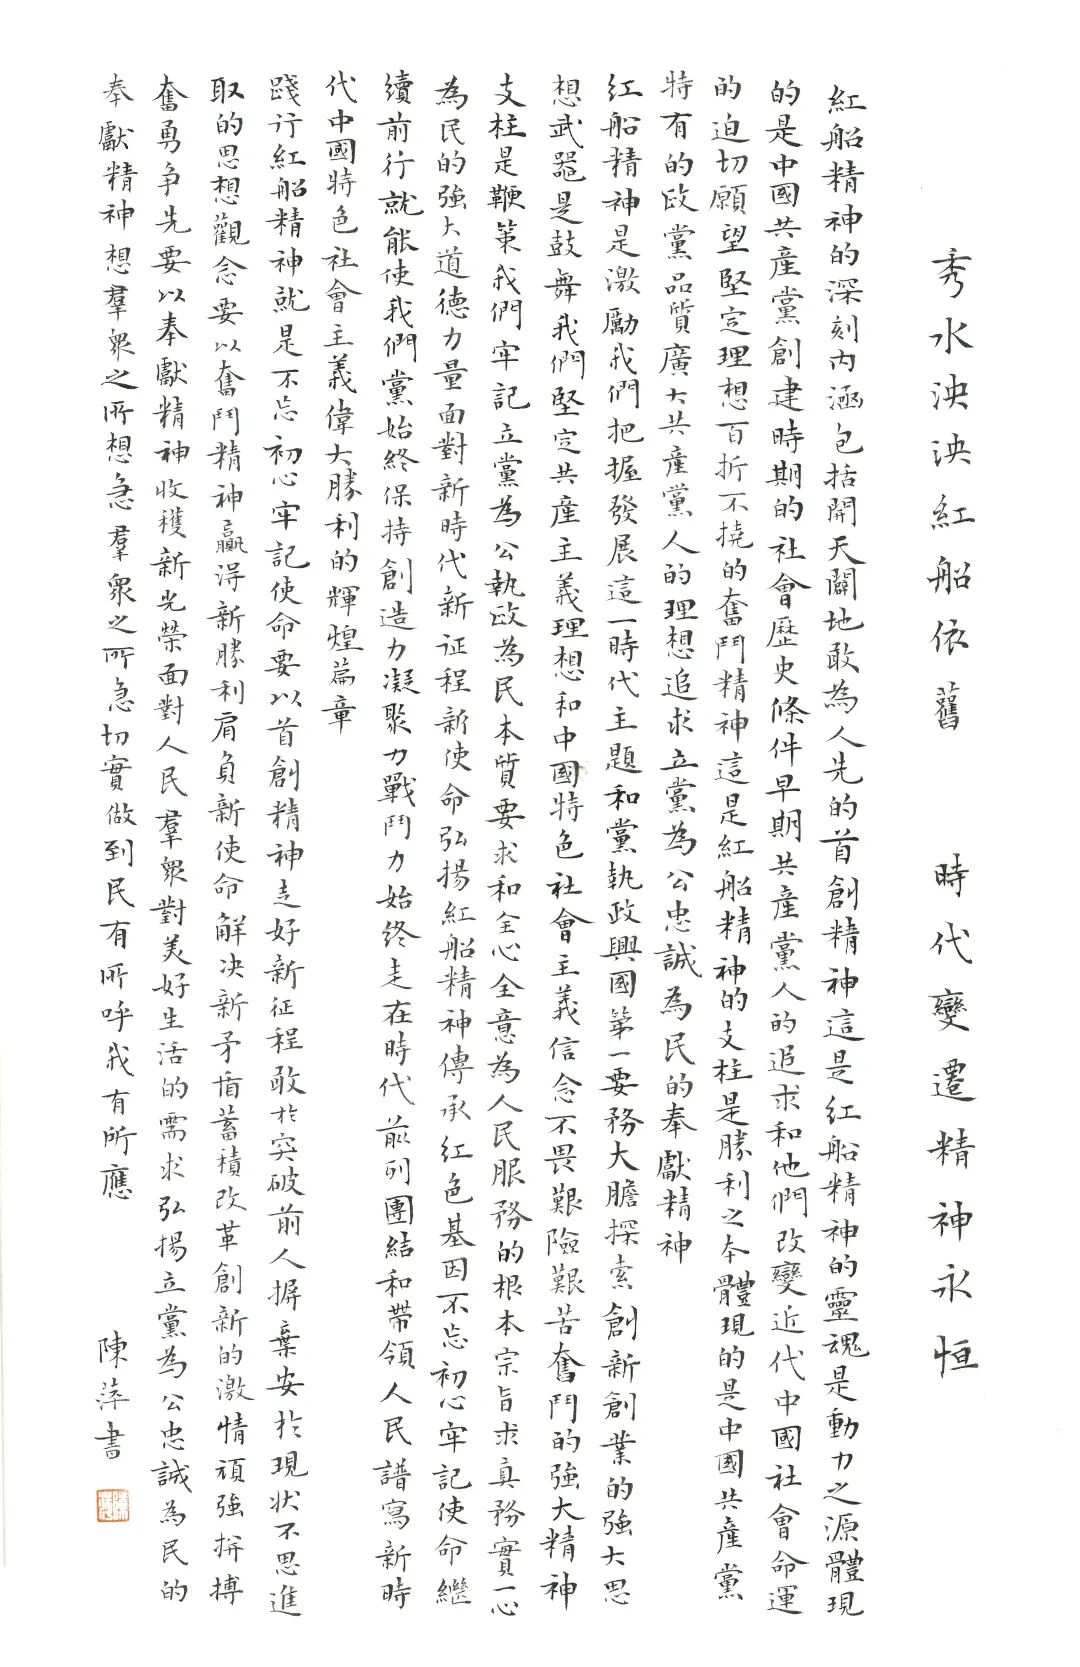 秀水泱泱紅船依舊　時代變遷精神永恒
紅船精神的深刻内涵包括開天闢地敢為人先的首創精神這是紅船精神的靈魂是動力之源體現
的是中國共產黨創建時期的社會歷史條件早期共產黨人的追求和他們改變近代中國社會命運
的迫切願望堅定理想百折不撓的奮鬥精神這是紅船精神的支柱是勝利之本體現的是中國共產黨
特有的政黨品質廣大共產黨人的理想追求立黨為公忠誠為民的奉獻精神
紅船精神是激勵我們把握發展這一時代主題和黨執政興國第一要務大膽探索創新創業的強大思
想武器是鼓舞我們堅定共產主義理想和中國特色社會主義信念不畏艱險艱苦奮鬥的強大精神
支柱是鞭策我們牢記立黨為公執政為民本質要求和全心全意為人民服務的根本宗旨求真務實一心
為民的強大道德力量面對新時代新征程新使命弘揚紅船精神傳承紅色基因不忘初心牢記使命繼
續前行就能使我們黨始終保持創造力凝聚力戰鬥力始終走在時代前列團結和帶領人民譜寫新時
代中國特色社會主義偉大勝利的輝煌篇章
踐行紅船精神就是不忘初心牢記使命要以首創精神走好新征程敢於突破前人摒棄安於現狀不思進
取的思想觀念要以奮鬥精神贏得新勝利肩負新使命解決新矛盾蓄積改革創新的激情頑強拼搏
奮勇爭先要以奉獻精神收穫新光榮面對人民羣眾對美好生活的需求弘揚立黨為公忠誠為民的
奉獻精神想羣眾之所想急羣眾之所急切實做到民有所呼我有所應　陳萍書